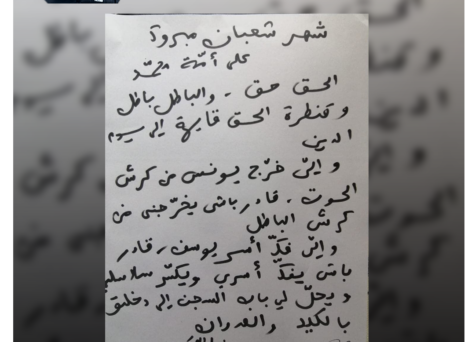 شهر شعبان مبروك
على أمّة محمّد
الحق حق . والباطل باطل
و قنطرة الحق قايمة إلى يوم
الدين
و إلّي خرّج يونس من كرش
الحوت . قادر باش يخرّجني من
كرش الباطل
و إلّي فكّ أسر يوسف . قادر
باش يفكّ أسري ويكسّر سلاسلي
و يحلّ لي باب السجن إلي دخلتو
بالكيد والعدوان